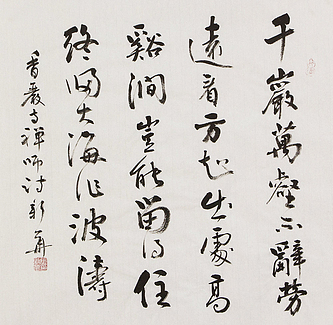 千巖萬壑不辭勞
遠看方知出處高
谿澗豈能留得住
終歸大海作波濤
香嚴寺禪師詩